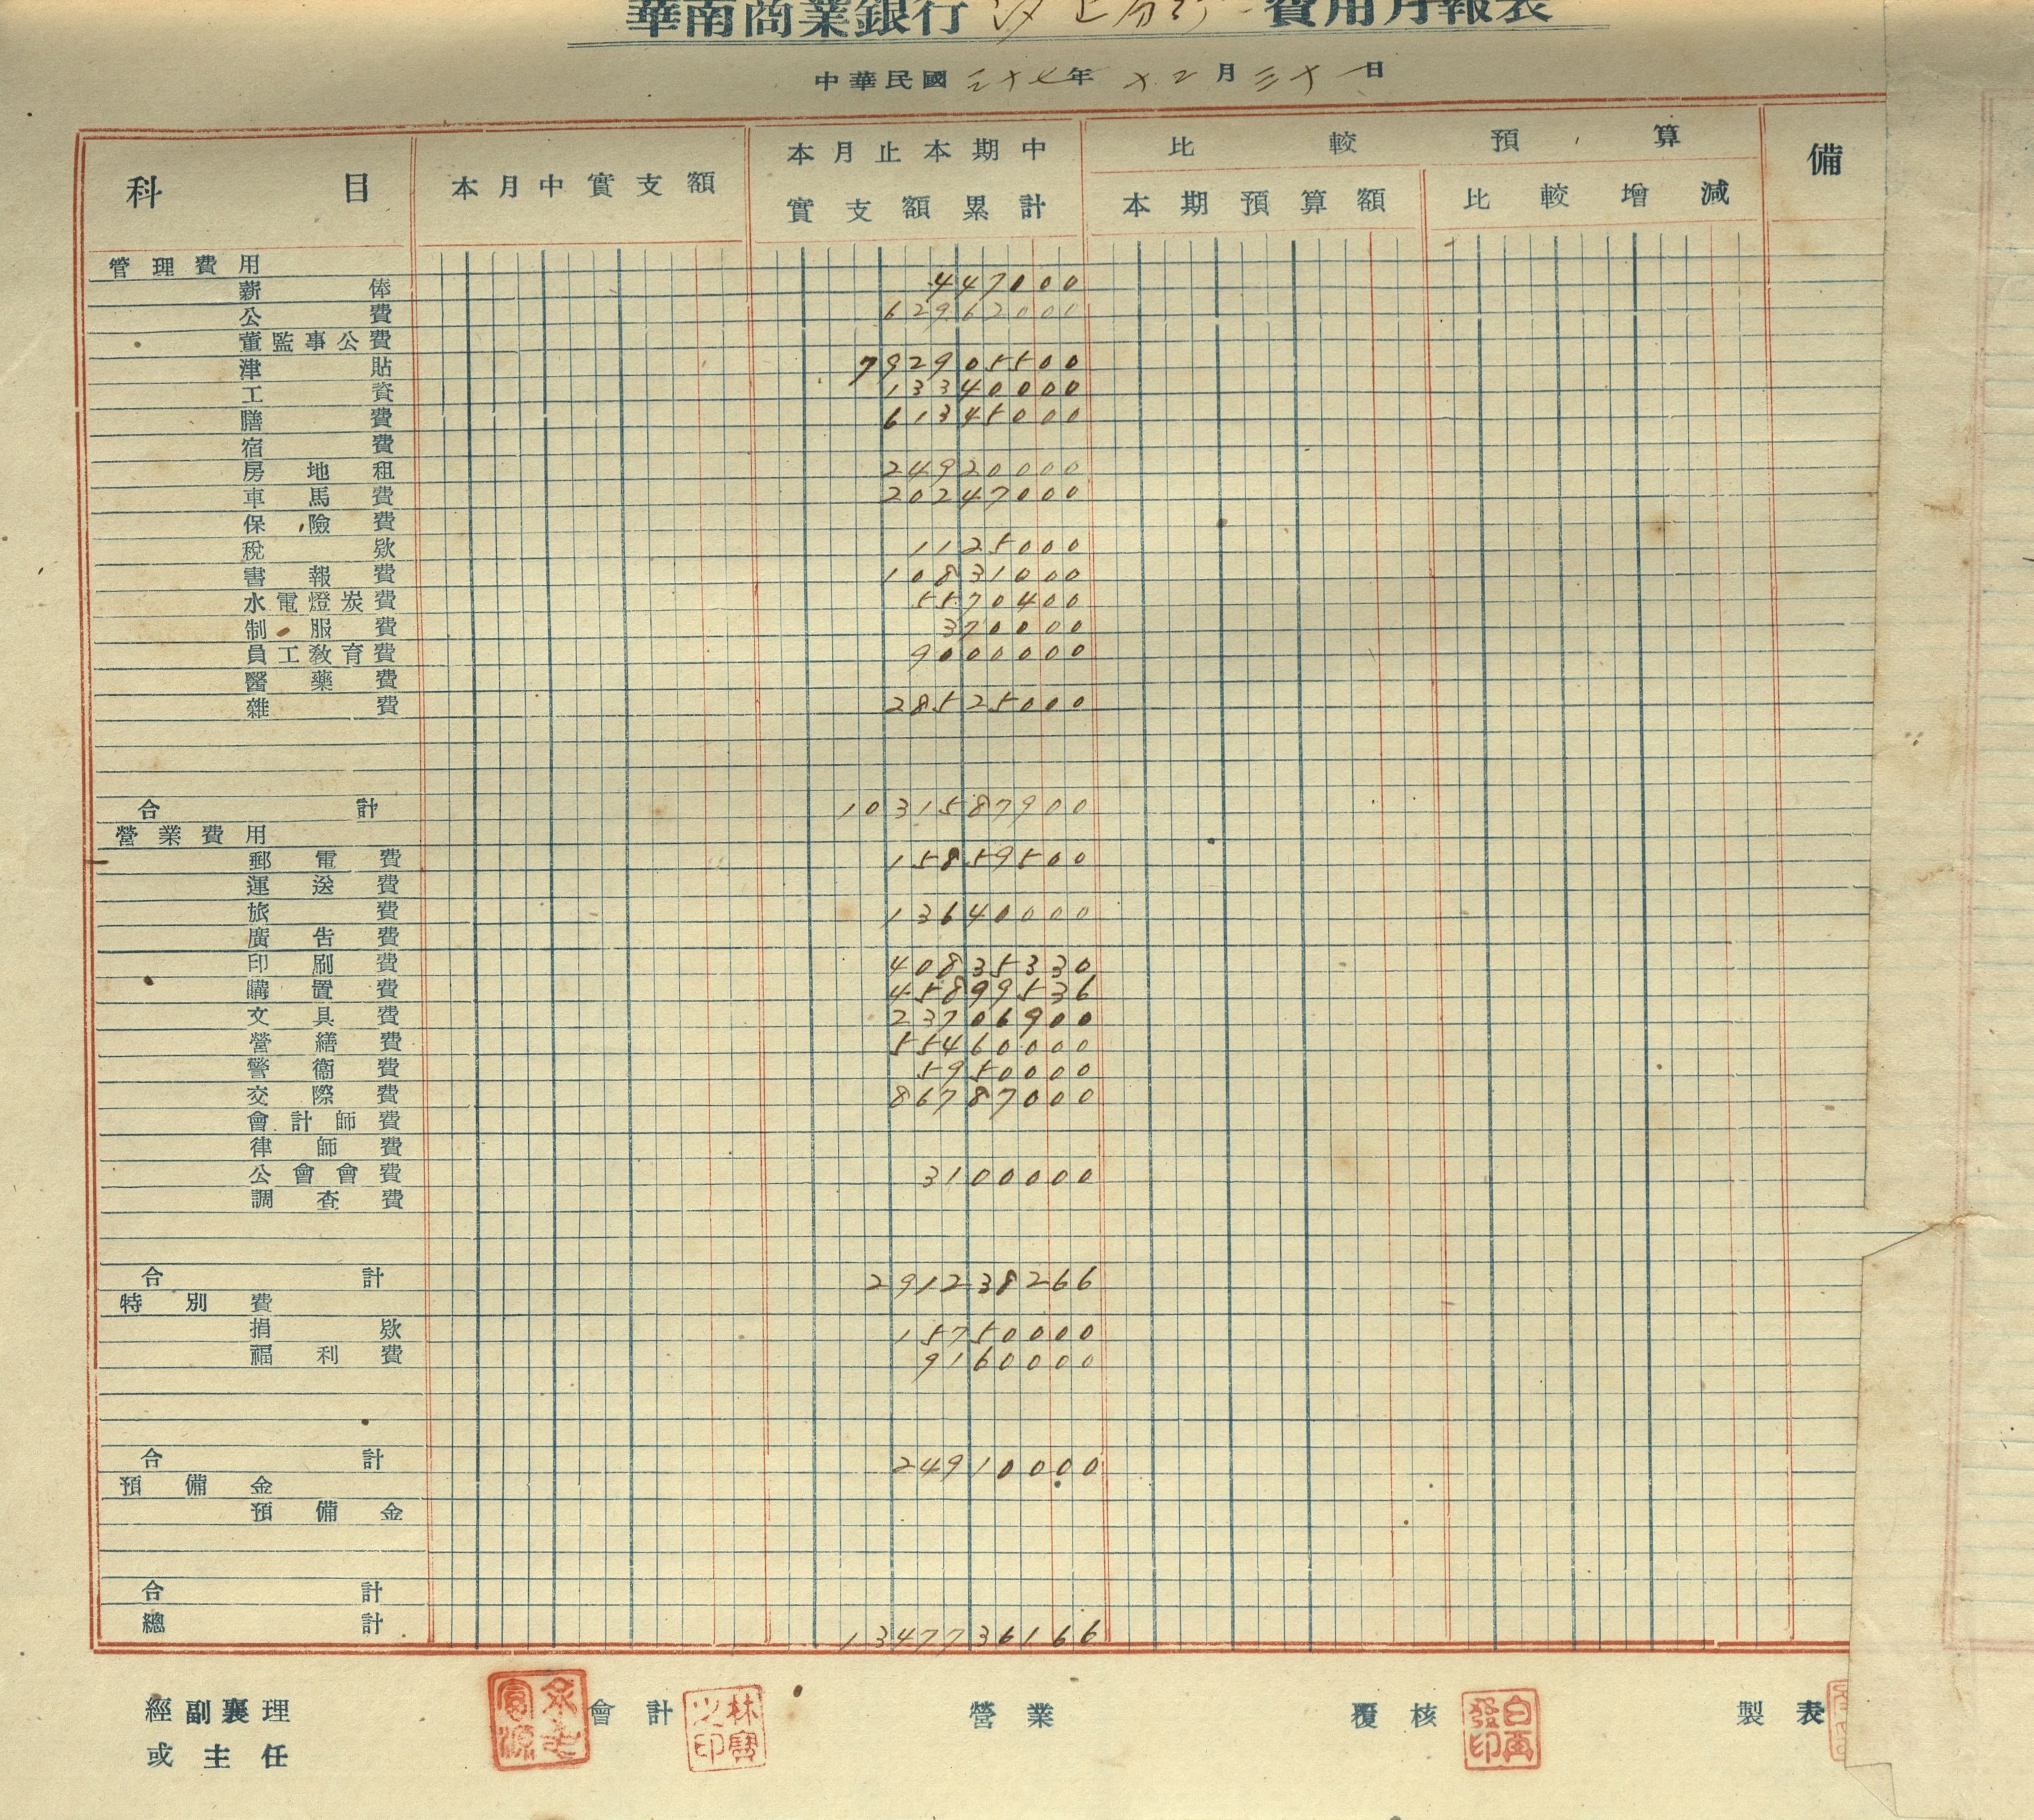 華南商業銀行 汐止分行 費用月報表
中華民國 三十七 年 十二 月 三十一 日
科目 本月中實支額 本月止本期中實支額累計 比較預算 備
本期預算額 比較增減
管理費用
薪俸 447000
公費 62962000
董監事公費
津貼 792905500
工資 13340000
膳費 61345000
宿費
房地租 24920000
車馬費 20247000
保險費
稅欵 1125000
書報費 10831000
水電燈炭費 5570400
制服費 370000
員工教育費 9000000
醫藥費
雜費 28525000
合計 1031587900
營業費用
郵電費 15859500
運送費
旅費 13640000
廣告費
印刷費 40835330
購置費 45899536
文具費 23706900
營繕費 55460000
警衞費 5950000
交際費 86787000
會計師費
律師費
公會會費 3100000
調查費
合計 291238266
特別費
捐欵 15750000
福利費 9160000
合計 24910000
預備金
預備金
合計
總計 1347736166
經副襄理 會計 林寶之印 營業 覆核 白再發印 製表
或主任